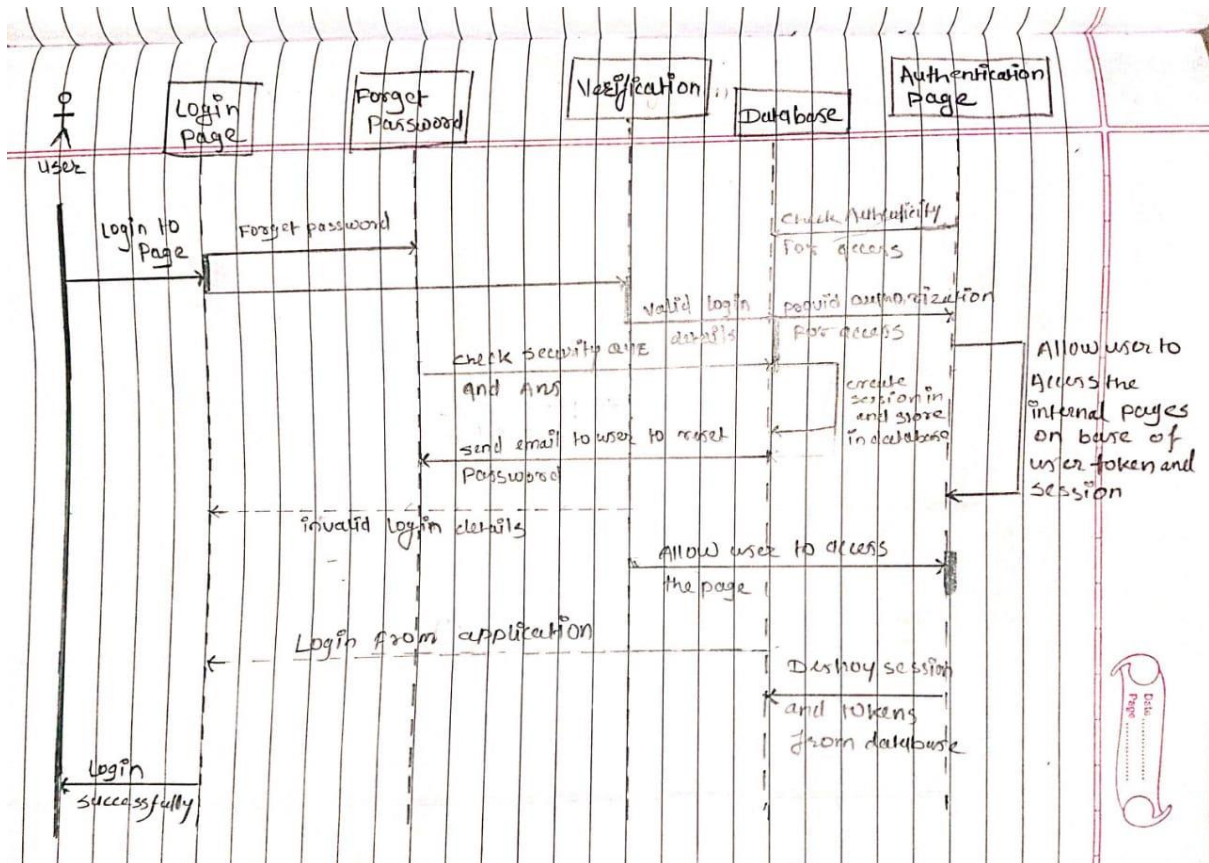 user
Login
page
Forget
Password
Verification
Database
Authentication
page
Login to
Page
Forget password
check Authenticity
For access
valid login
details
authorization
For access
check security que
and Ans
create
session in
and store
in database
Allow user to
Access the
internal pages
on base of
user token and
session
send email to user to reset
Password
invalid login details
Allow user to access
the page
Login from application
Destroy session
and tokens
from database
Login
successfully
Date
Page